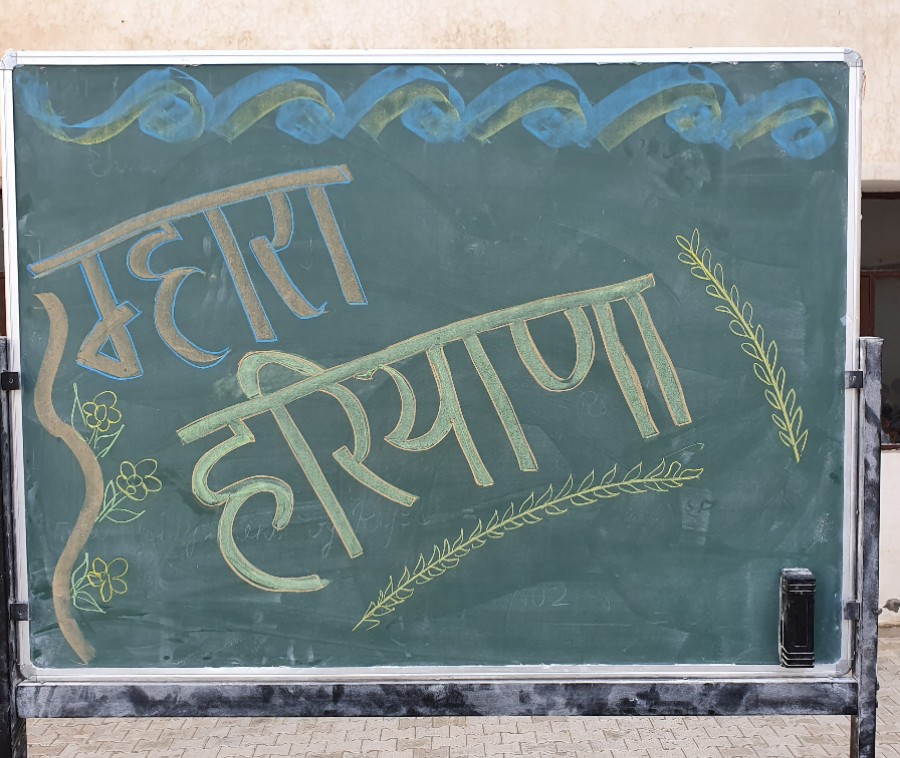 म्हारा
हरियाणा